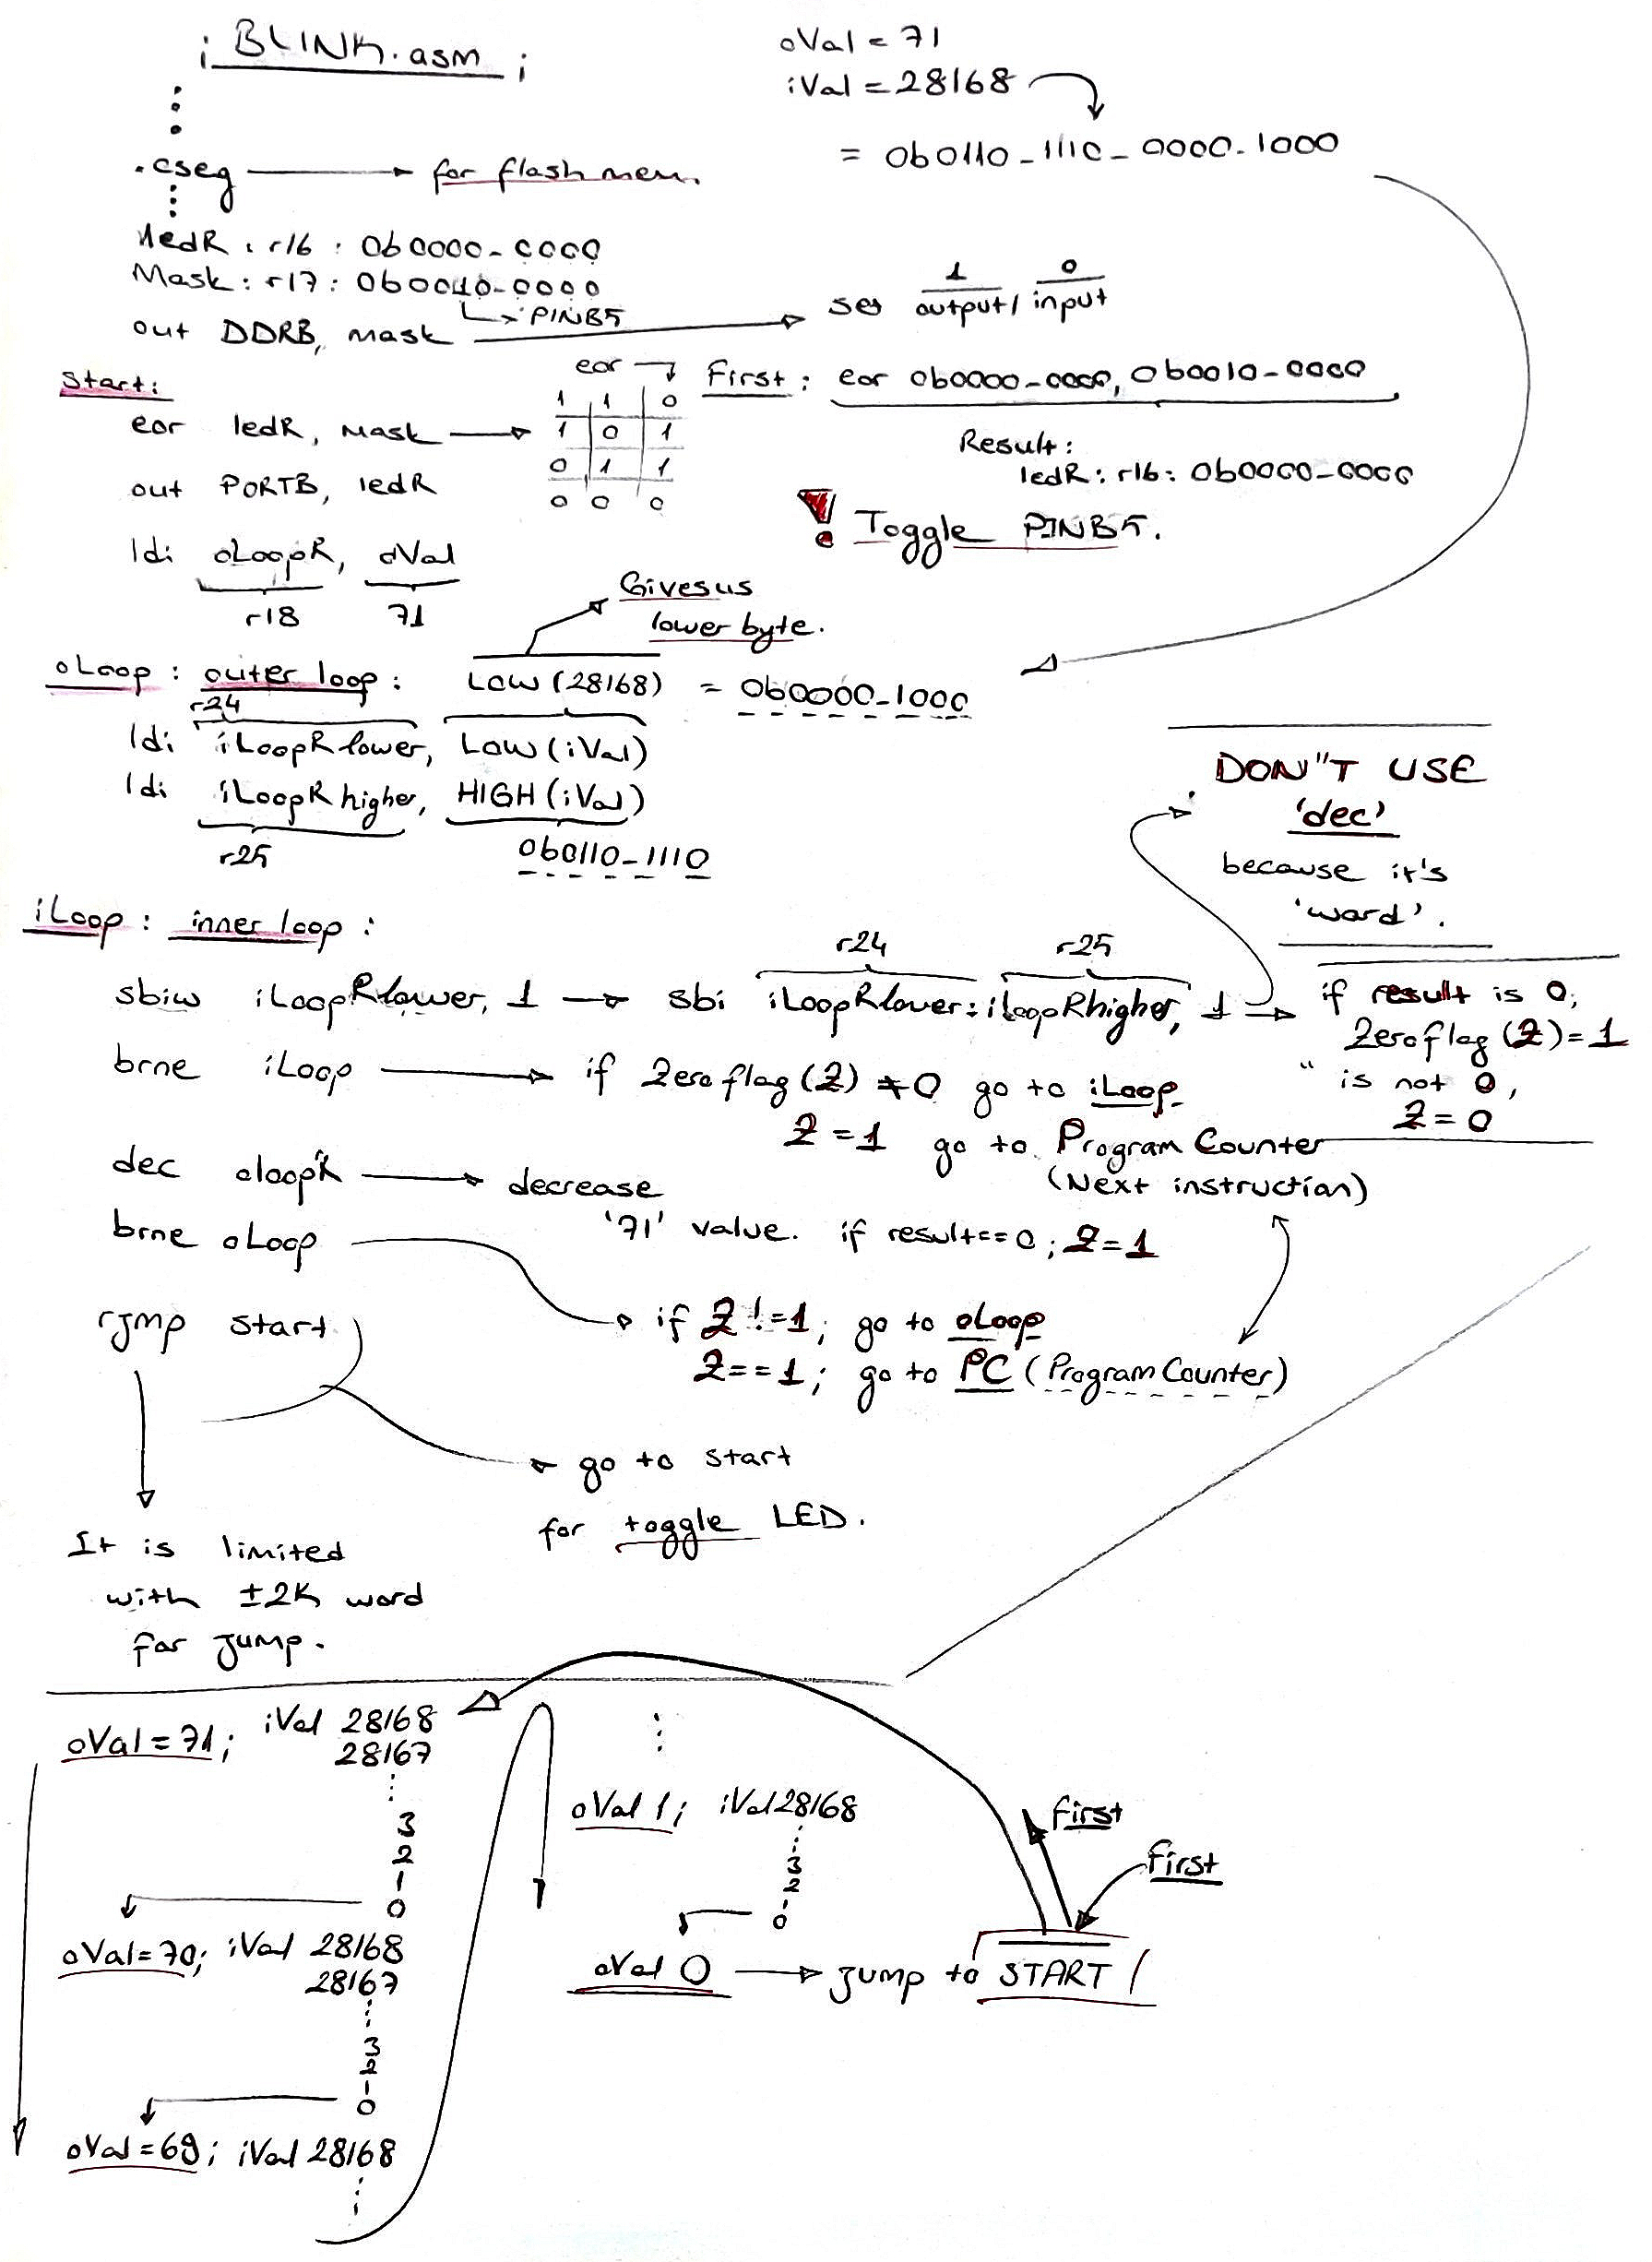 ; BLINK.asm ;
oVal = 71
iVal = 28168
= 0b0110_1110_0000_1000
.cseg → for flash mem.
ledR : r16 : 0b0000_0000
Mask : r17 : 0b0010_0000
↳ PINB5
out DDRB, mask → set 1 output / 0 input
Start:
eor ledR, Mask →
eor
1 1 0
1 0 1
0 1 1
0 0 0
First : eor 0b0000_0000, 0b0010_0000
Result :
ledR : r16 : 0b0000_0000
out PORTB, ledR
! Toggle PINB5.
ldi oLoopR, oVal
r18 71
Gives us
lower byte.
oLoop : outer loop : LOW (28168) = 0b0000_1000
r24
ldi iLoopRlower, LOW (iVal)
ldi iLoopRhigher, HIGH (iVal)
r25 0b0110_1110
DON"T USE
'dec'
because it's
'word'.
iLoop : inner loop :
r24 r25
sbiw iLoopRlower, 1 → sbi iLoopRlover : iloopRhigher, 1 →
if result is 0,
Zero flag (Z) = 1
" is not 0,
Z = 0
brne iLoop → if Zero flag (Z) ≠ 0 go to iLoop
Z = 1 go to Program Counter
(Next instruction)
dec oloopR → decrease
'71' value. if result == 0 ; Z = 1
brne oLoop
if Z != 1 ; go to oLoop
Z == 1 ; go to PC (Program Counter)
rjmp start
go to start
for toggle LED.
It is limited
with ±2K word
for jump.
oVal = 71 ; iVal 28168
28167
⋮
3
2
1
0
oVal = 70 ; iVal 28168
28167
⋮
3
2
1
0
oVal = 69 ; iVal 28168
⋮
⋮
oVal 1 ; iVal 28168
⋮
3
2
1
0
oVal 0 → jump to START /
First
First